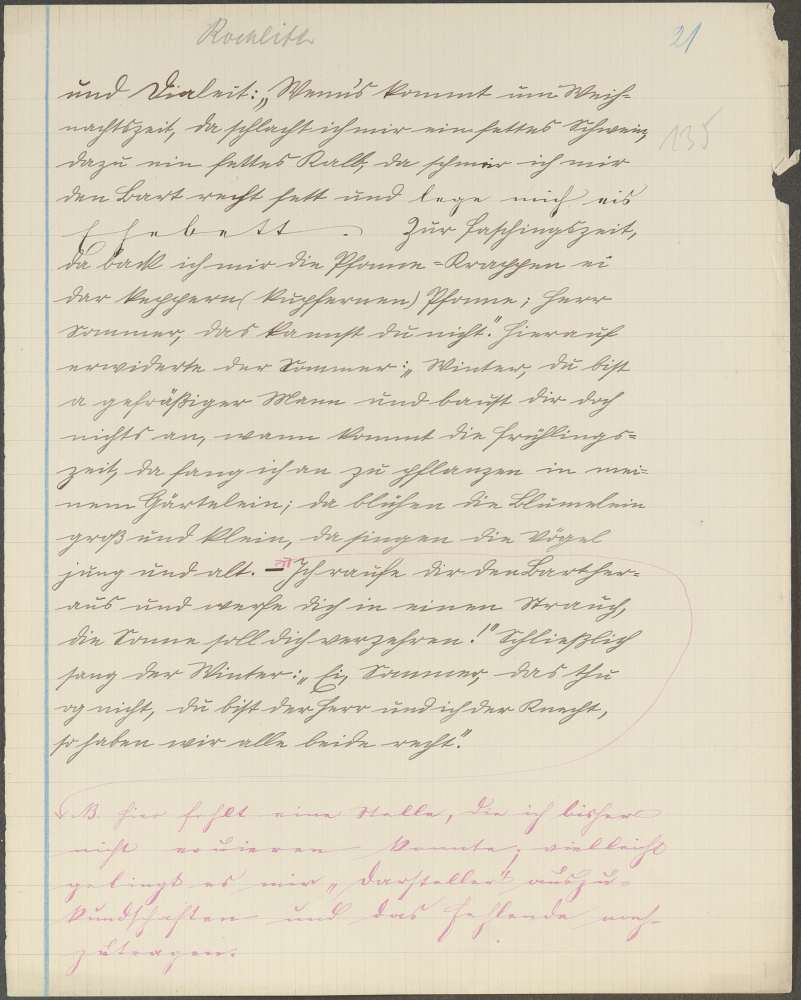 Rochlitz
21
und Dialeit: „Wenn's kommt um Weih=
nachtszeit, da schlacht ich mir ein fettes Schwein,
135
dazu ein fettes Kalb, da schmier ich mir
den Bart recht fett und lege mich eis
Ehebett. Zur Faschingszeit,
da back ich mir die Pfanne=Krappen ei
dar keppern (kupfernen) Pfanne; Herr
Sommer, das kannst du nicht." Hierauf
erwiderte der Sommer: „Winter, du bist
a gefräßiger Mann und baust dir doch
nichts an, wann kommt die Frühlings=
zeit, da fang ich an zu pflanzen in mei=
nem Gärtelein; da blühen die Blümelein
groß und klein, da singen die Vögel
jung und alt. — Ich raufe dir den Bart her=
aus und werfe dich in einen Strauch,
die Sonne soll dich verzehren!" Schließlich
sang der Winter: „Ei, Sommer, das thu
og nicht, du bist der Herr und ich der Knecht,
so haben wir alle beide recht."
NB. Hier fehlt eine Stelle, die ich bisher
nicht eruieren konnte; vielleicht
gelingt es mir, „Darsteller" auszu=
kundschaften und das Fehlende nach=
zutragen.